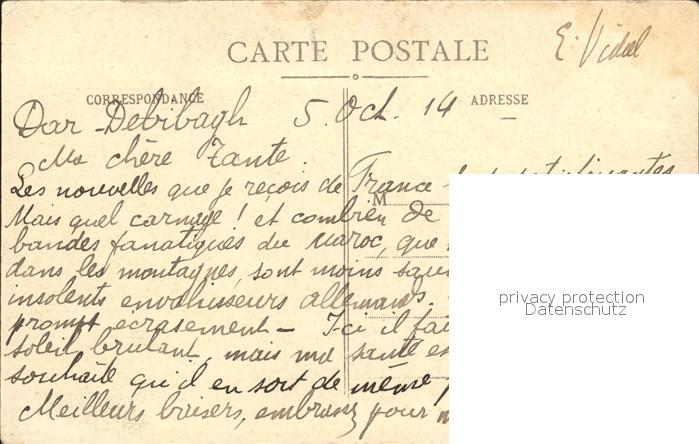 E. Vidal
CARTE POSTALE
CORRESPONDANCE
ADRESSE
Dar-Debibagh 5. Oct. 14
Ma chère Tante.
Les nouvelles que je reçois de France
M
Mais quel carnage! et combien de
bandes fanatiques du Maroc, que
dans les montagnes, sont moins
insolents envahisseurs allemands.
prompt écrasement - Ici il fait
soleil brulant, mais ma santé es
souhaite qu'il en soit de même
Meilleurs baisers, embrassez pour
privacy protection
Datenschutz